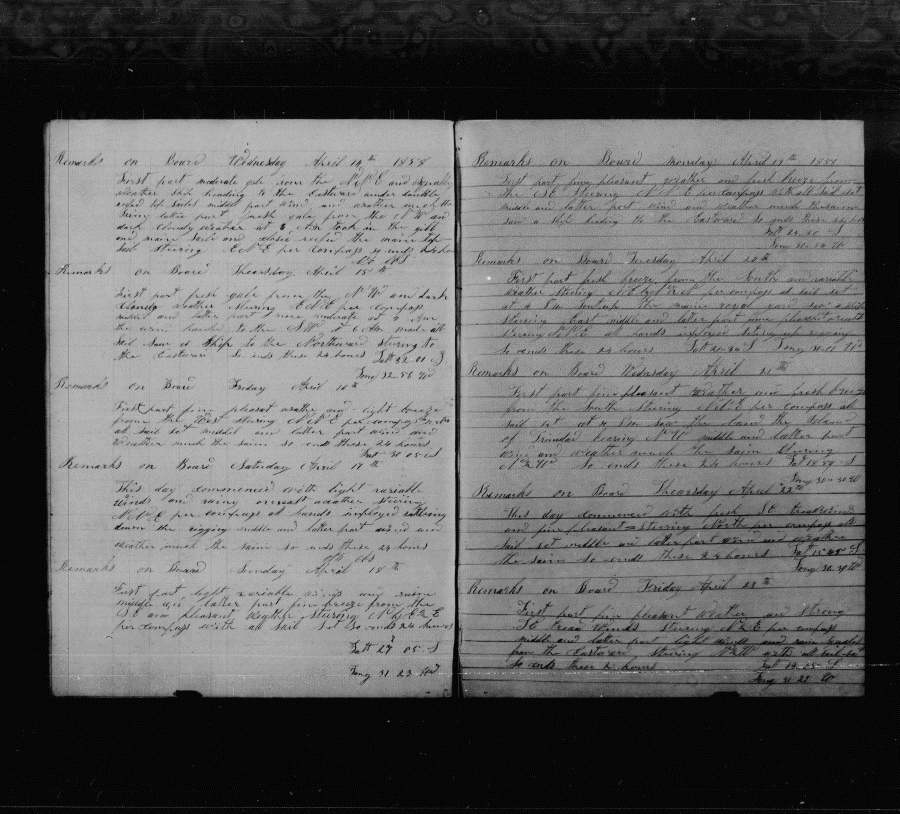 Remarks on Board Wednesday April 14th 1858
First part moderate gale from the NNE and squally
weather ship heading to the Eastward under double
reefed top Sails middle part wind and weather much the
Same latter part fresh gale from the NW and
dark Cloudy weather at 6 AM took in the
main Sail and close reefed the main top
Sail Steering ENE per Compass so ends
Remarks on Board Thoarsday April 15th
First part fresh gale from the NW and dark
Cloudy weather Steering ENE per Compass
middle and latter part more moderate at
the wind hauled to the SW at AM made all
Sail Saw a Ship to the Northward steering to
the Eastward So ends these 24 hours Latt 32 01 S
Long 32-56 Wd
Remarks on Board Friday April 16th
First part fine pleasant weather and light breeze
from the West stering NNE per compass with
all sail set middle and latter part wind and
Weather much the same so ends these 24 hours
Latt 30 05 S
Remarks on Board Saturday April 17th
This day commenced with light variable
winds and rainy unpleasant weather steering
NNE per compass all hands imployed ratling
down the rigging middle and latter part wind and
weather much the same so ends these 24 hours
Remarks on Board Sunday April 18th
First part light variable winds and rain
middle and latter part fine breeze from the
SE and pleasant weather stering
per compass with all Sail Set So ends 24 hours
Latt 27 05 S
Long 31 23 Wd
Remarks on Board monday April 19th 1858
First part fine pleasant weather and fresh breeze from
the ESE Steering per compass with all Sail set
middle and latter part wind and weather much the same
saw a Ship heading to the Eastward so ends these 24 hours
Latt 24 20 S
Long 30 Wd
Remarks on Board Tuesday April 20th
First part fresh breeze from the South and variable
weather stering per compass all sail set
at 5 PM the main royal yard saw a ship
steering East middle and latter part fine pleasant weather
Stering NNE all hands imployed
So ends these 24 hours Latt S Long 30 Wd
Remarks on Board Wednsday April 21th
First part fine pleasant weather and fresh breeze
from the South stering NNE per compass all
sail set at 4 PM saw the land the Island
of Trinidad bearing NW middle and latter part
wind and weather much the same Steering
So ends these 24 hours Latt 18 S
Long 30 30 Wd
Remarks on Board Thoarsday April 22th
This day commenced with fresh SE tradewind
and fine pleasant steering North per compass all
Sail set middle and latter part wind and weather
the same So ends these 24 hours Latt 15 45 S
Long Wd
Remarks on Board Friday April 23th
First part fine pleasant weather and Strong
SE Trade Winds stering per compass
middle and latter part light winds and rain
from the Eastward steering with all sail set
So ends these 2 hours Latt S
Long 31 23 W